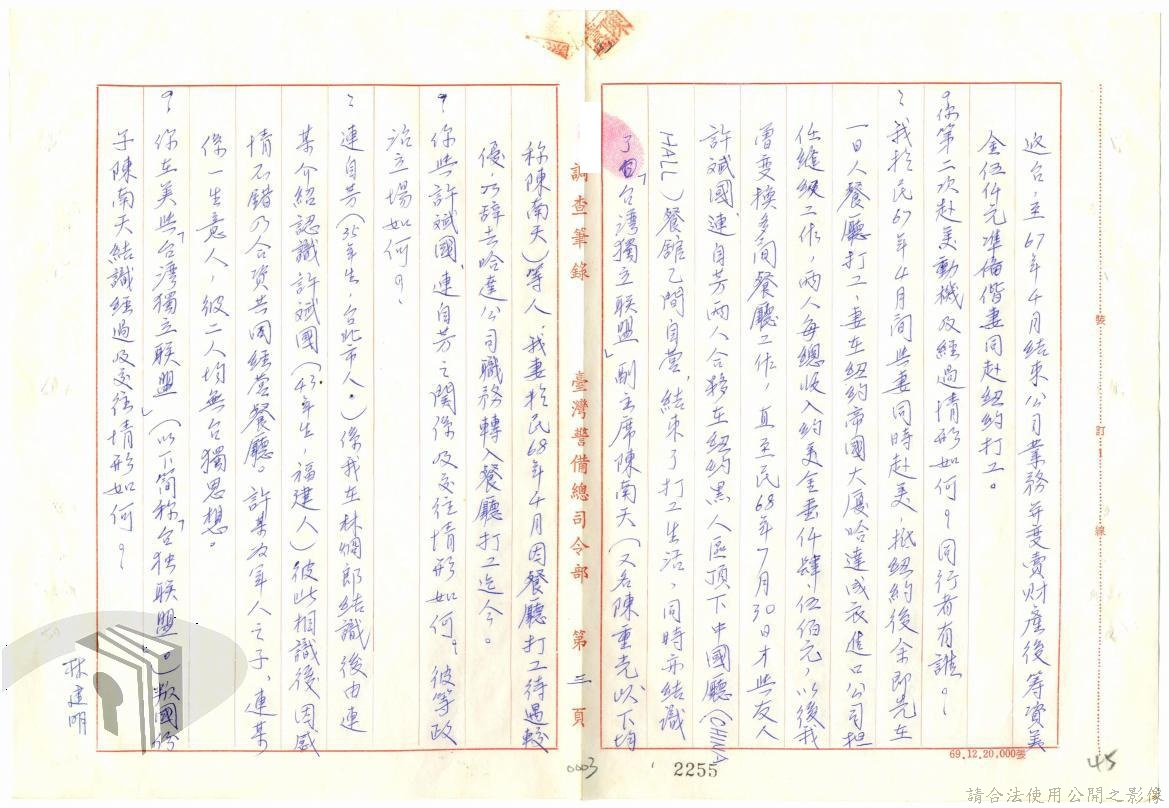 返台，至67年4月結束公司業務并變賣財產後籌資美
金伍仟元準備偕妻同赴紐約打工。
?你第二次赴美動機及經過情形如何?同行者有誰?
:我於民67年4月間與妻同時赴美，抵紐約後余即先在
一日人餐廳打工，妻在紐約帝國大廈哈達成衣進口公司担
任縫紉工作，兩人每總收入約美金壹仟肆、伍佰元，以後我
曾變換多間餐廳工作，直至民68年7月30日才與友人
許斌國、連自芳兩人合夥在紐約黑人區頂下中國廳（CHINA
HALL）餐館乙間自營，結束了打工生活，同時亦結識
了「台灣獨立联盟」副主席陳南天（又名陳重光以下均
調查筆錄 臺灣警備總司令部 第三頁
称陳南天）等人，我妻於民68年4月因餐廳打工待遇較
優，乃辞去哈達公司職務轉入餐廳打工迄今。
?你與許斌國、連自芳之関係及交往情形如何?彼等政
治立場如何?
:連自芳（35年生，台北市人。）係我在林烱郎結識後由連
某介紹認識許斌國（43年生，福建人）彼此相識後，因感
情不錯乃合資共同經营餐廳。許某為軍人之子、連某
係一生意人，彼二人均無台獨思想。
?你在美與「台灣獨立联盟」（以下简称「台独联盟」）叛國份
子陳南天結識經過及交往情形如何?
林建明
裝 訂 線
69.12.20,000張
0003
2255
45
請合法使用公開之影像